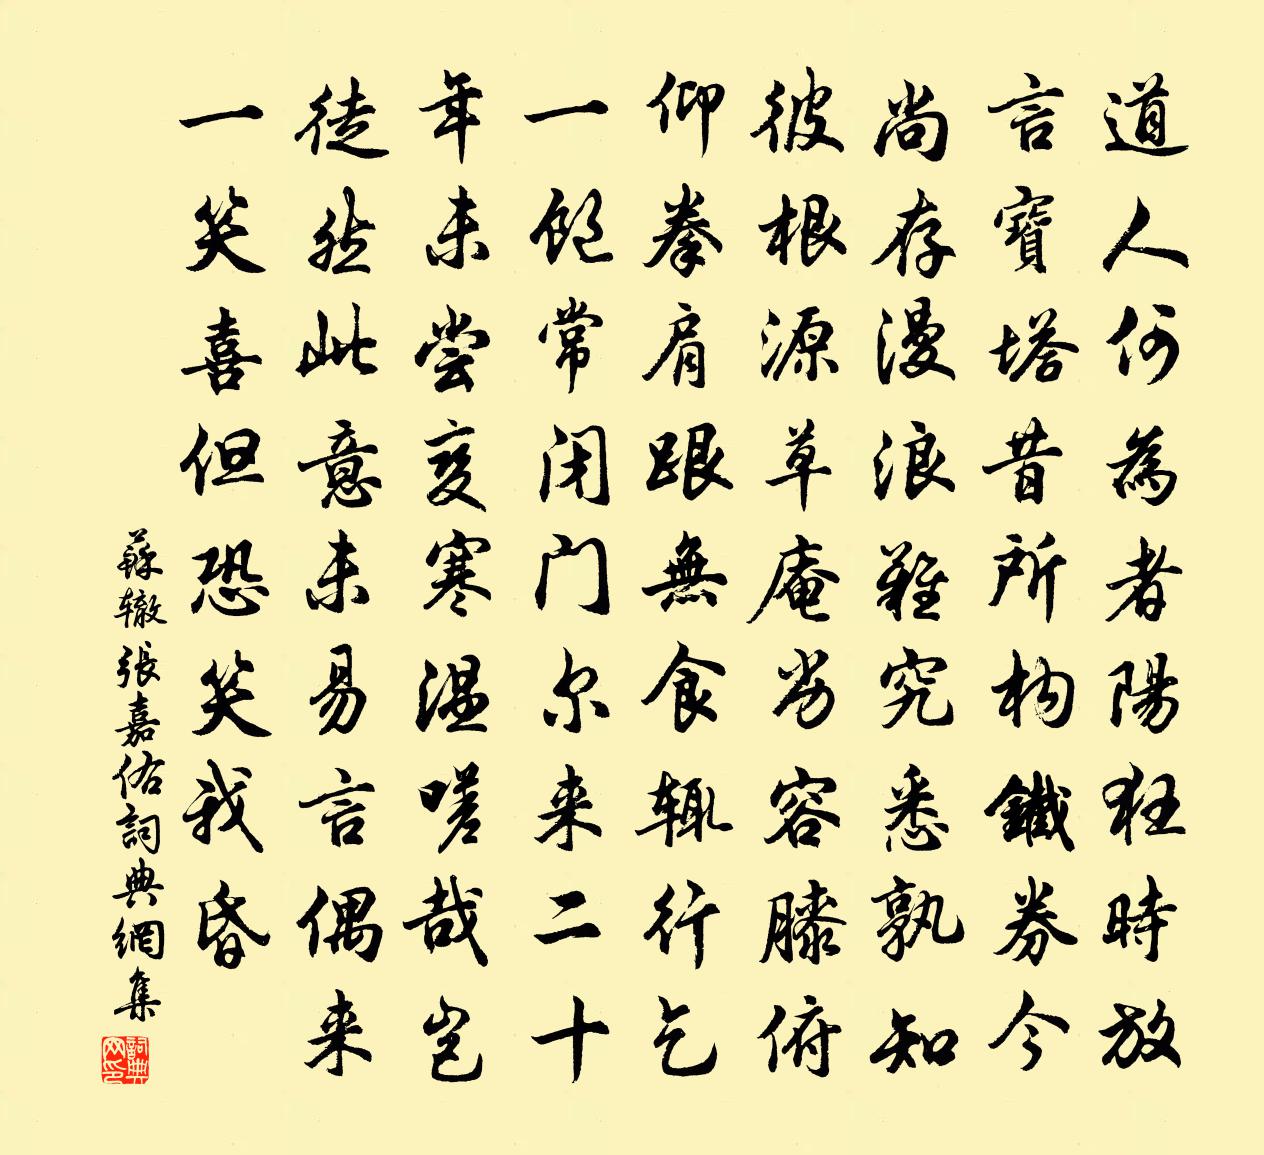 道人何為者陽狂時放
言寶塔昔所构鐵券今
尚存漫浪難究悉孰知
彼根源草庵劣容膝俯
仰拳肩跟無食辄行乞
一飽常闭门尔来二十
年未尝变寒温嗟哉岂
徒然此意未易言偶来
一笑喜但恐笑我昏
蘇辙張嘉佑詞典網集
詞典网印